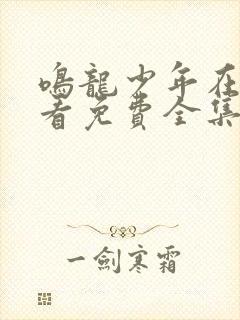 鳴龍少年在
看免費全集
一劍寒霜